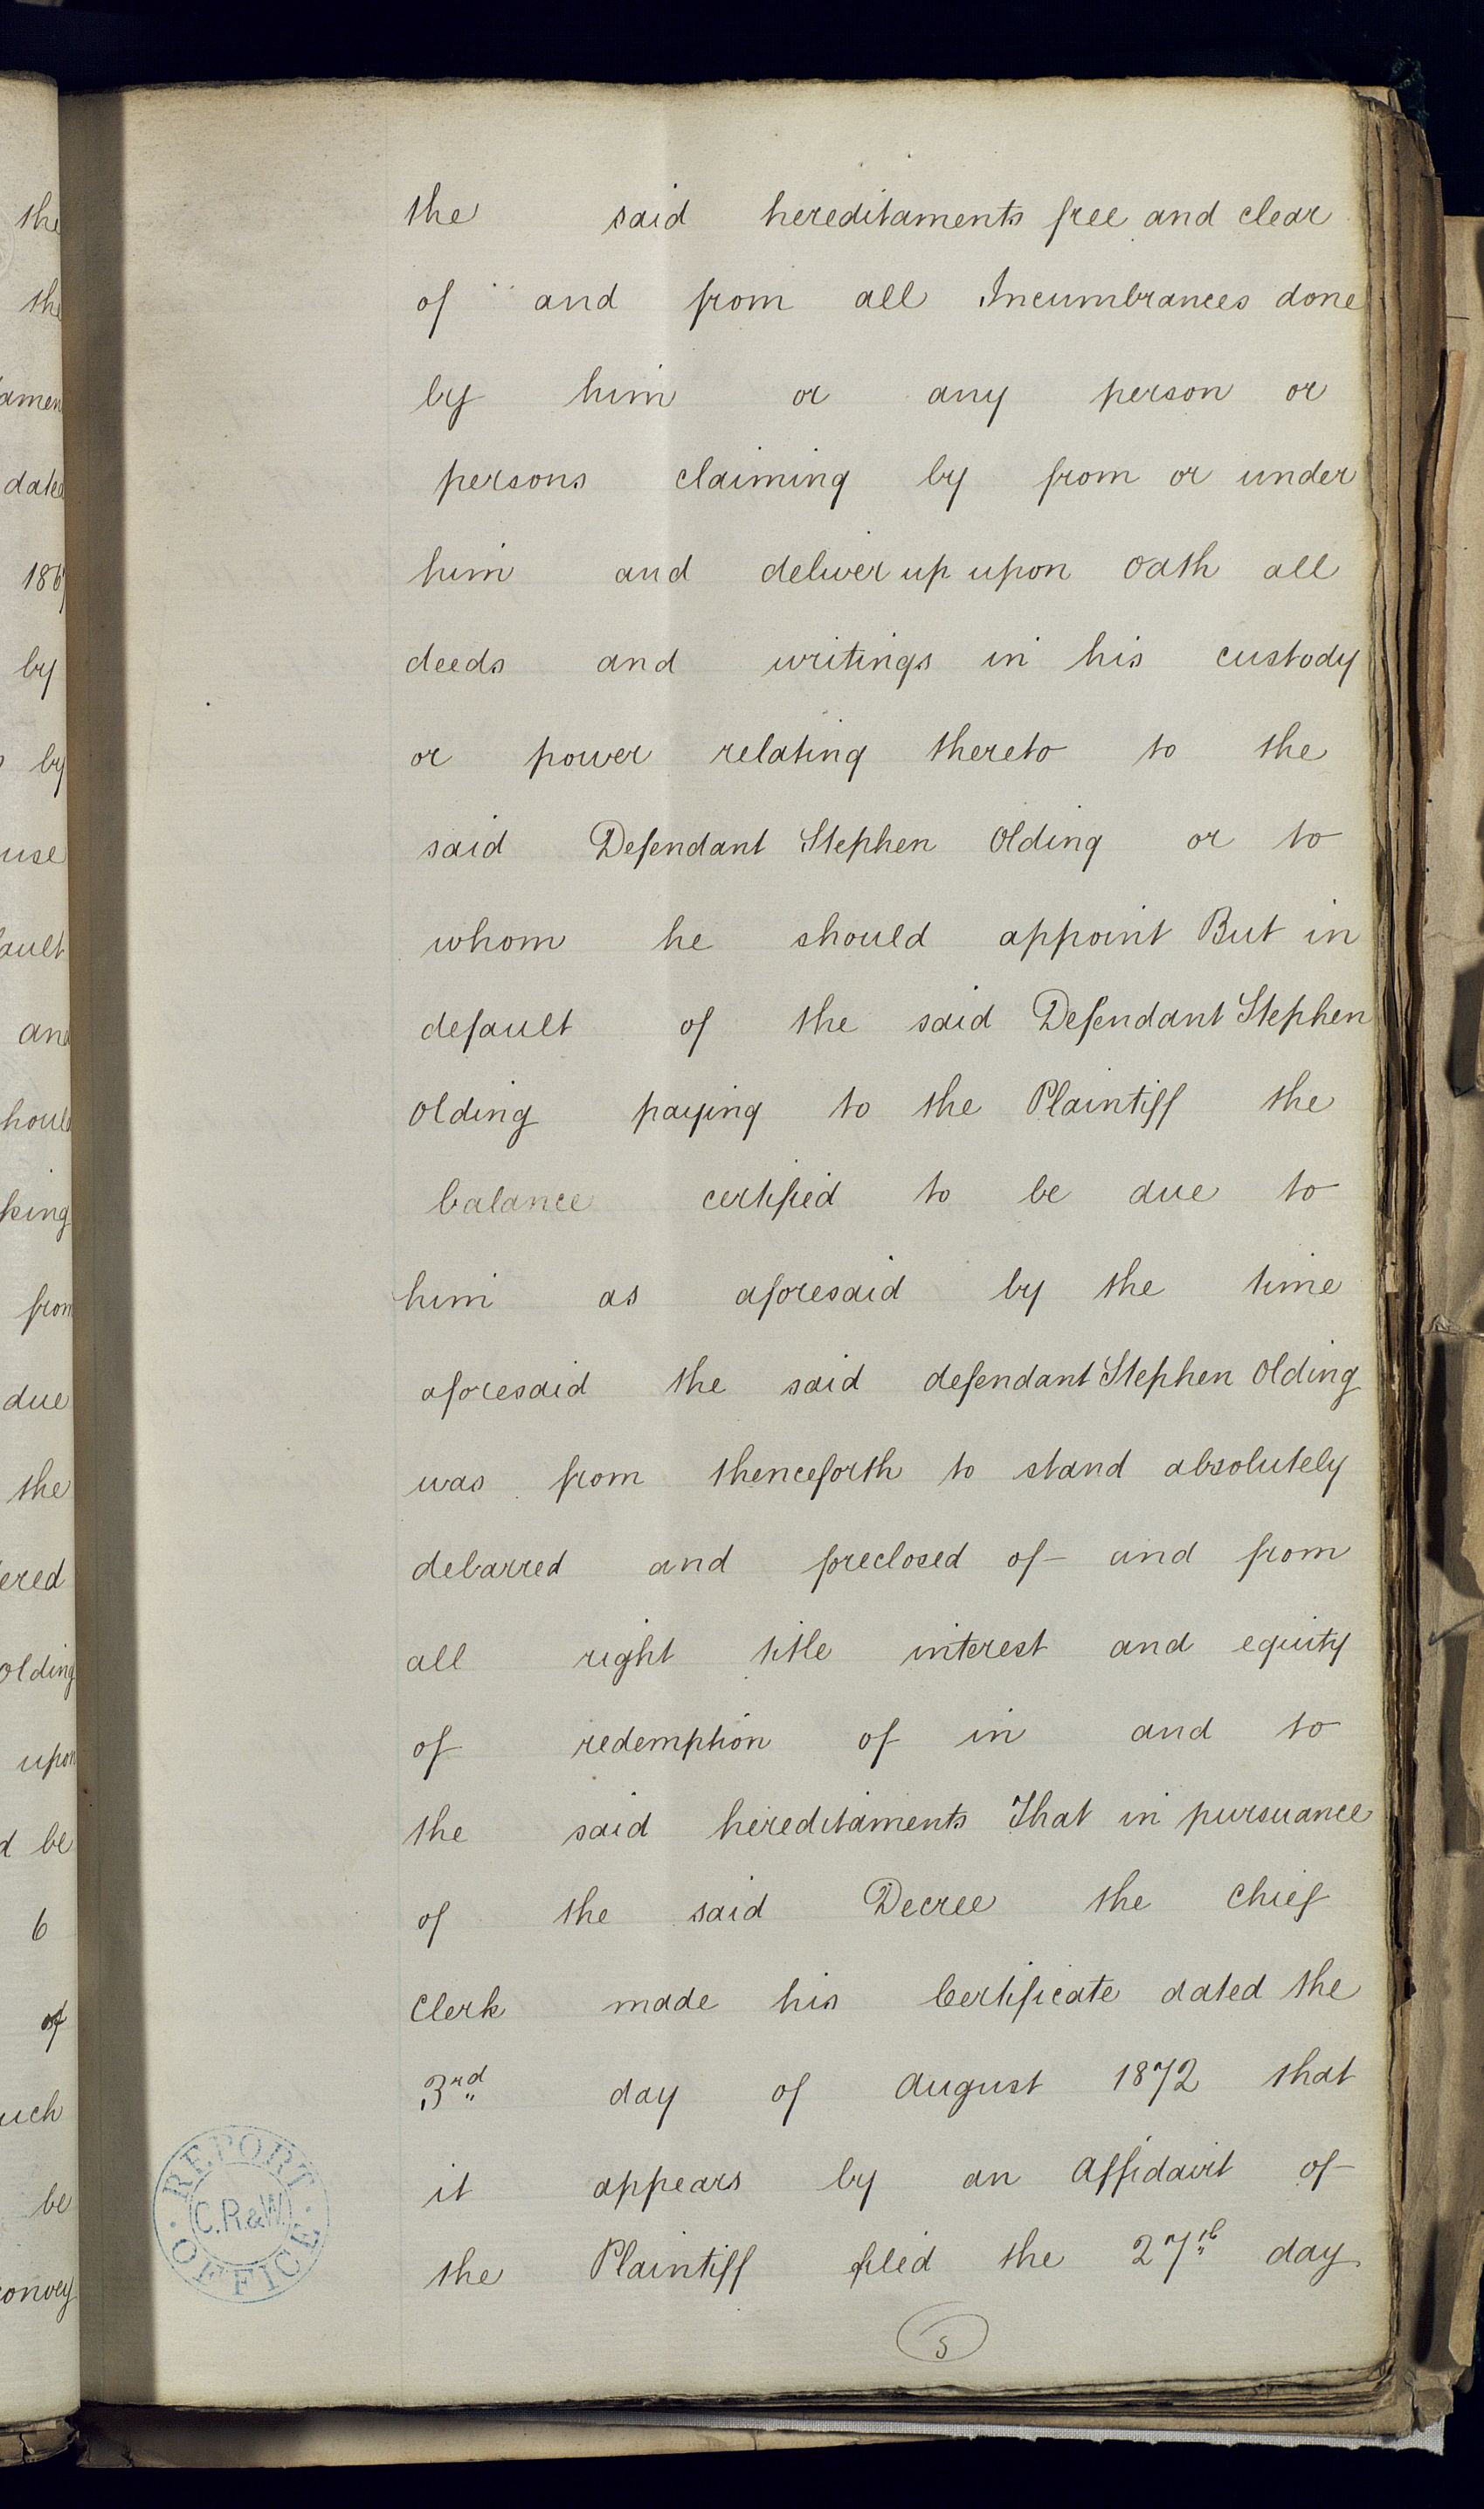 the
the
date
by
by
use
and
from
due
the
Olding
upon
be
6
of
be
convey
the said hereditaments free and clear
of and from all Incumbrances done
by him or any person or
persons claiming by from or under
him and deliver up upon oath all
deeds and writings in his custody
or power relating thereto to the
said Defendant Stephen Olding or to
whom he should appoint But in
default of the said Defendant Stephen
Olding paying to the Plaintiff the
balance certified to be due to
him as aforesaid by the time
aforesaid the said defendant Stephen Olding
was from thenceforth to stand absolutely
debarred and foreclosed of and from
all right title interest and equity
of redemption of in and to
the said hereditaments That in pursuance
of the said Decree the Chief
Clerk made his Certificate dated the
3rd day of August 1872 that
it appears by an Affidavit of
the Plaintiff filed the 27th day
5
REPORT OFFICE
C.R.&W.